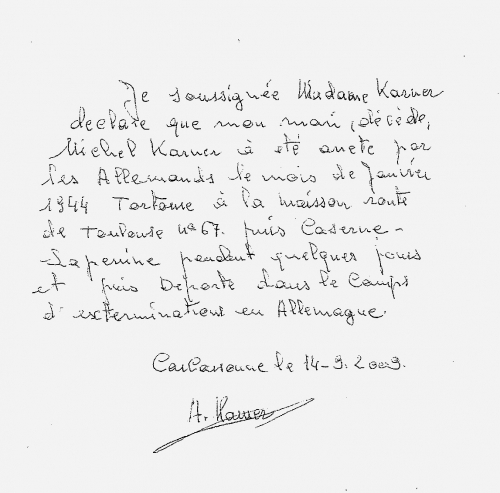 Je soussignée Madame Karner
declare que mon mari, décédé,
Michel Karner à été arreté par
les Allemands le mois de Janvier
1944 Tortome à la maisson route
de Toulouse nº 67. puis Caserne-
Laperine pendant quelques jours
et puis Deporté dans le Camps
d'exterminations en Allemagne.
Carcassonne le 14-9. 2009.
A. Karner